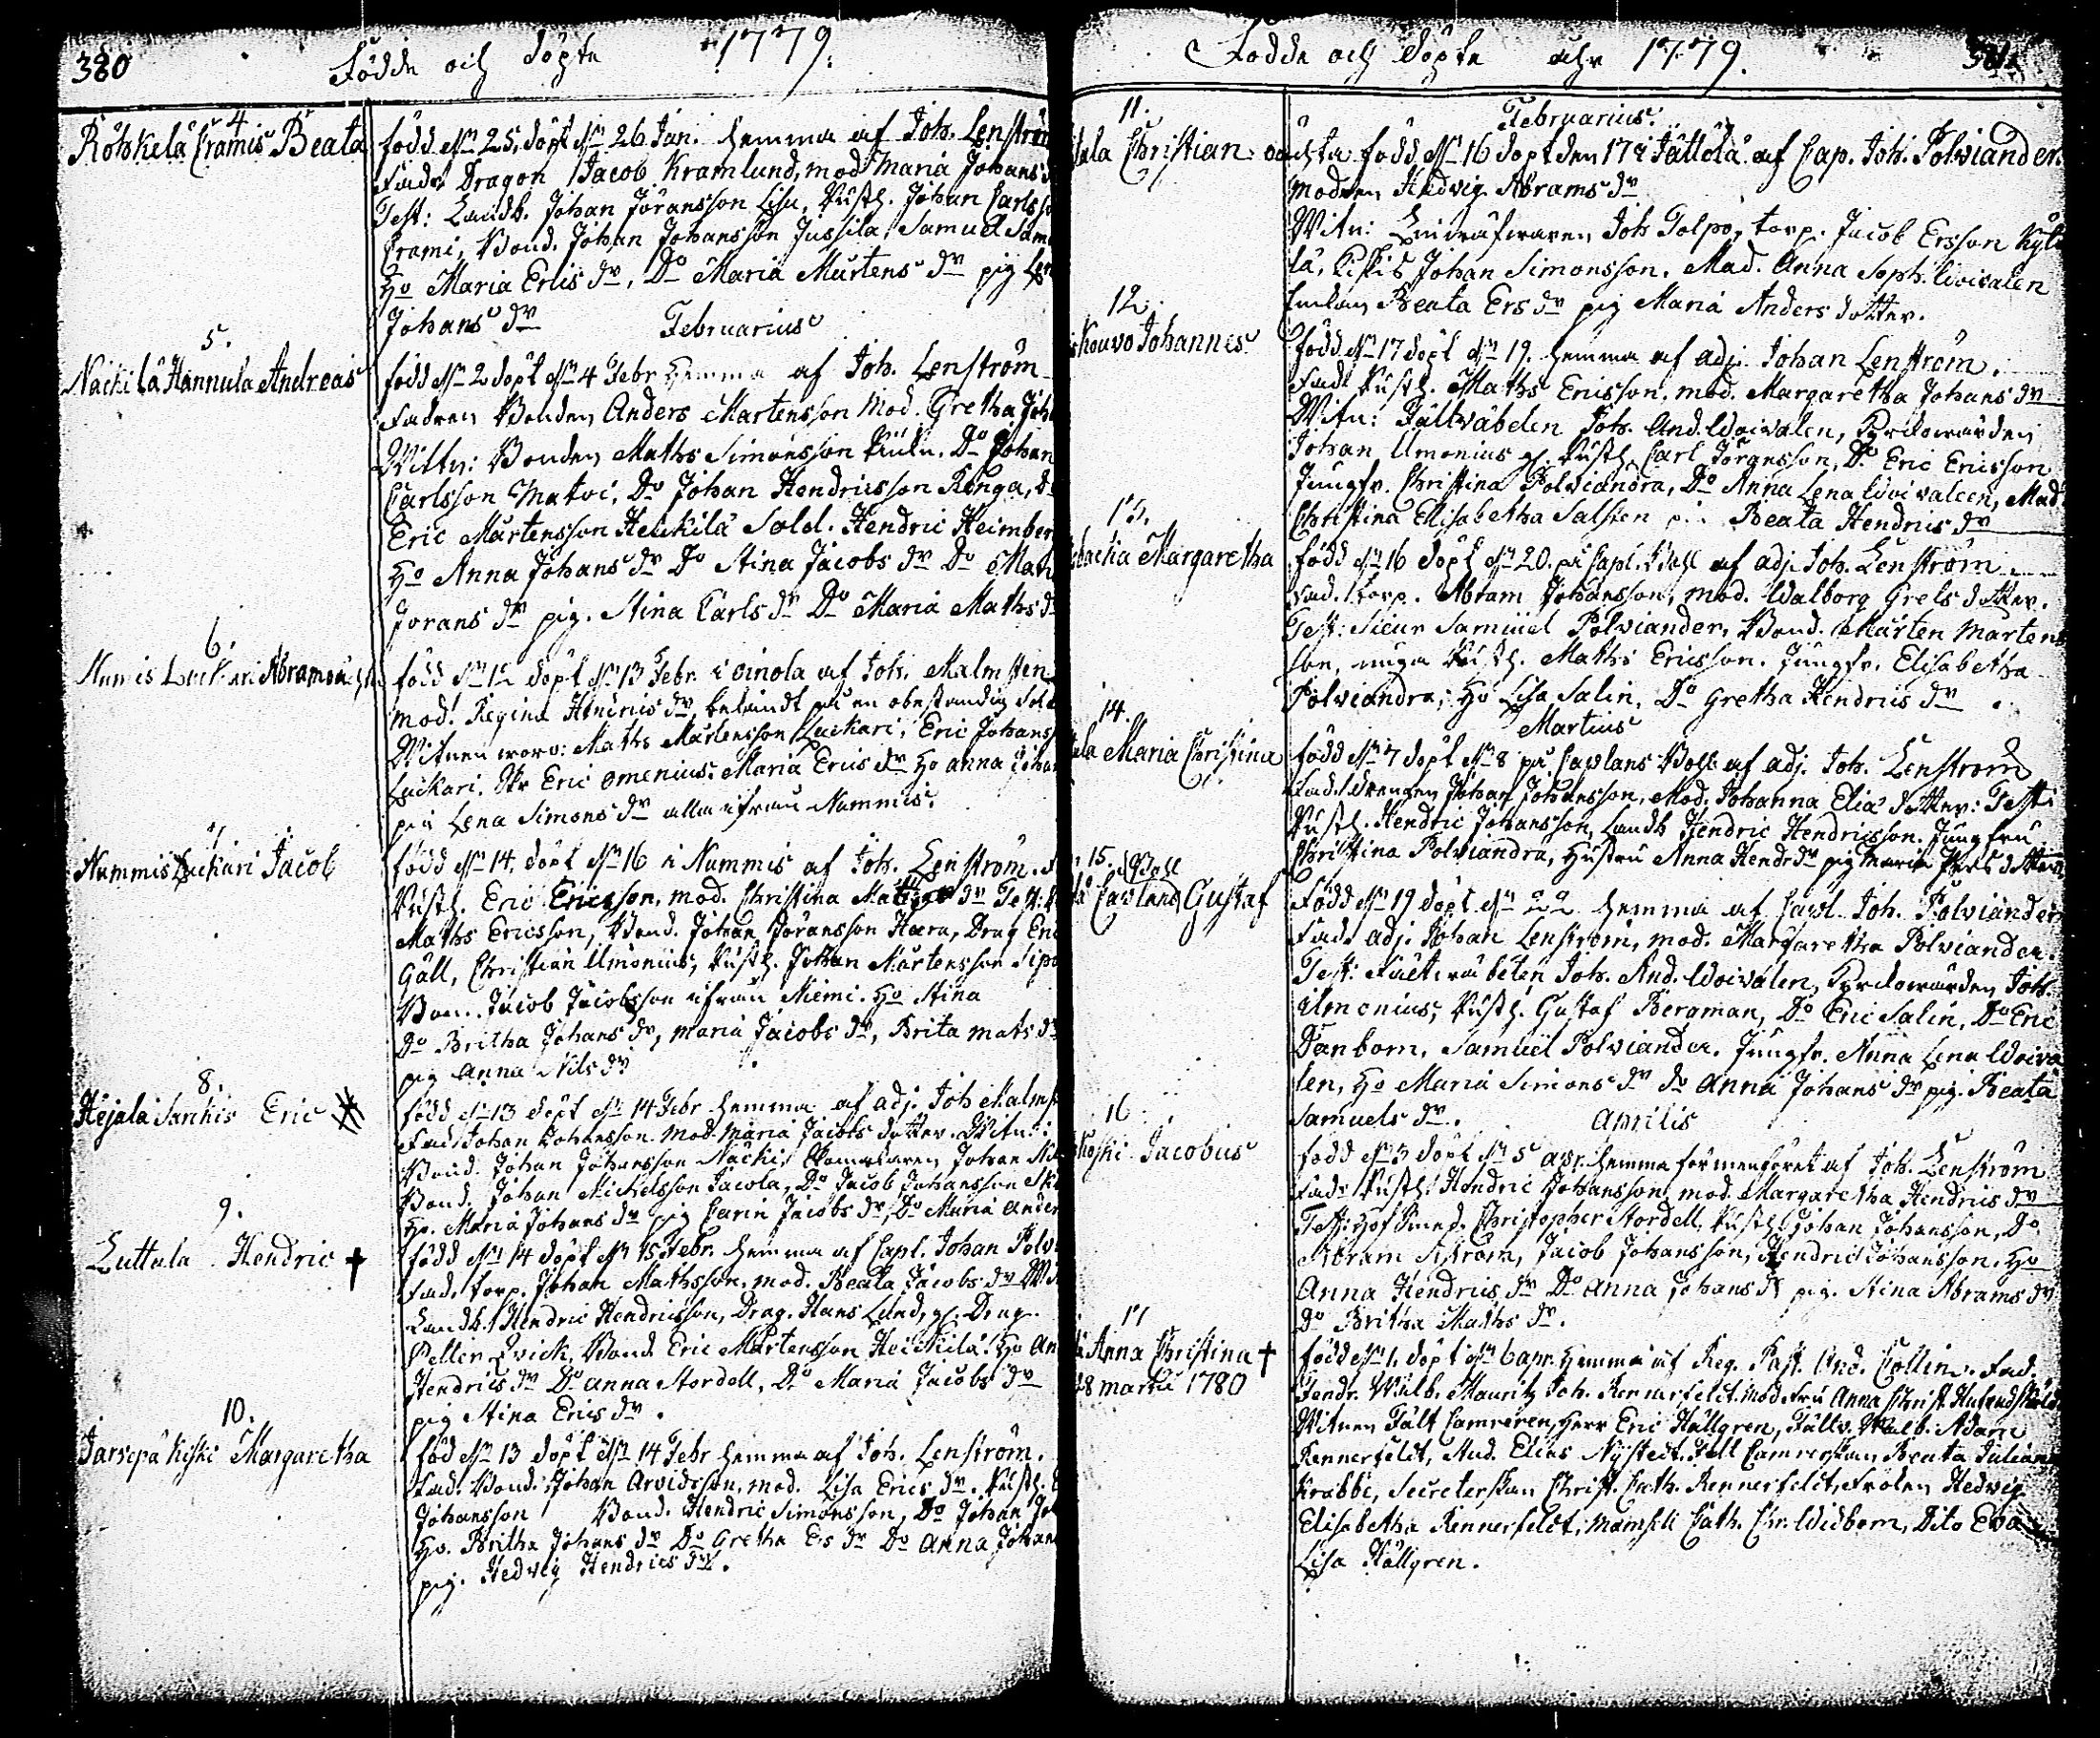 380 Födde och döpte 1779.
4
Röhkelä Cramis Beata
född d. 25, döpt d. 26 Jan. hemma af Joh. Lenström
Fadr. Dragon Jacob Kramlund, mod Maria Johans
Test: Landb. Johan Jöransson Lisa, Rusth. Johan Carlsso
Crami, Bond. Johan Johansson Jussila, Samuel Sam
Ho Maria Erlis dr, Do Maria Mårtens dr pig
Johans dr Februarius
5.
Näckilä Hannula Andreas
född dn 2 döpt dn 4 Febr Hemma af Joh. Lenström
Fadren Bonden Anders Martensson Mod. Gretha Joh
Wittn: Bonden Maths Simonsson Do Johan
Carlsson Matvi, Do Johan Hendricsson Ronga, Do
Eric Mårtensson Heickilä Sold. Hendric Heimber
Ho Anna Johans dr Do Stina Jacobs dr Do
Jorans dr pig. Stina Carls dr Do Maria Maths dr
6.
Numis Luckari Abram
född dn 12 döpt dn 13 Febr i oinola af Joh. Malmsten
mod. Regina Henrics dr
Witnen woro: Maths Mårtensson Luckari, Eric Johans
Luckari. Eric Omenius. Maria Erics dr Ho anna Johan
pig Lena Simons dr alla ifrån Nummis.
7
Nummis Luckari Jacob
född dn 14, döpt dn 16 i Nummis af Joh. Lenström.
Rusth. Eric Ericsson, mod. Christina dr Test:
Maths Ericsson, Bond. Johan Jöransson Hera, Drag Eric
Gåll, Christian Ilmonius, Rusth. Johan Mårtensson
Bon. Jacob Jacobsson ifrån Niemi. Ho Stina
Do Britha Johans dr, maria Jacobs dr, Brita mats dr
pig Anna Nils dr
8.
Hejala Sackis Eric
född dn 13 döpt dn 14 Febr hemma af adj. Joh Malmst
Fad. Johan Johansson. Mod. Maria Jacobs dotter. Witn:
Bond. Johan Johansson Näcki, Johan
Bond. Johan Michelsson Jacola, Do Jacob Johansson
Ho. Maria Johans dr pig Carin Jacobs dr, Do Maria Ander
9.
Luttula Hendric †
född dn 14 döpt dn 15 Febr. hemma af Capl. Johan Polv
Fad. torp. Johan Mathsson, mod. Beata Jacobs dr
Landb. Hendric Hendricsson, Drag. Hans Lund, Drag.
Peller Qvick, Bond. Eric Mårtensson Heickilä. Ho An
Hendrics dr Do anna Stordell, Do Maria Jacobs dr
pig Stina Erics dr.
10.
Jarvepä Kiski Margaretha
född dn 13 döpt dn 14 Febr hemma af Joh. Lenström.
Fad. Bond. Johan Arvidsson, mod. Lisa Erics dr. Rusth.
Johansson Bond. Hendric Simonsson, Do Johan
Ho. Britha Johans dr Do Gretha Ers dr Do Anna Johan
pig. Hedvig Hendrics dr.
Födde och döpte åhr 1779. 381
Februarius.
11.
Christian
oächta född dn 16 döpt den 17 i Jättölä af Cap. Joh. Polviander
Modren Hedvig Abrams dr
Witn: Joh Tolpo, torp. Jacob Ersson
lä, Kiskis Johan Simonsson. Mad. Anna Soph. Woivalen
Enkan Beata Ers dr pig Maria Anders dotter.
12.
Kouvo Johannes
född dn 17 döpt dn 19. hemma af adj. Johan Lenström.
Fadr Rusth. Maths Ericsson, mod. Margaretha Johans dr
Witn: Fältväbelen Joh. And. Woivalen, Kyrckowärden
Johan Ilmonius, Rusth. Carl Jöransson, Do Eric Ericsson
Jungfr. Christina Polviandra, Do Anna Lena Woivaleen, Mad
Christina Elisabetha Salsten Beata Hendrics dr
13.
backa Margaretha
född dn 16 döpt dn 20. på Capl. Bohl af adj. Joh. Lenström
Fad. Torp. Abram Johansson, mod. Walborg Grels dotter.
Test: Sieur Samuel Polviander, Bond. Mårten Mårtens
son, unga Rusth. Maths Ericsson. Jungfr. Elisabetha
Polviandra, Ho Lisa Salin, Do Gretha Hendrics dr.
Martius
14.
Maria Christina
född dn 7 döpt dn 8 på Caplans Bohl af adj. Joh. Lenström
Fad. drengen Johan Johansson, Mod. Johanna Elia dotter: Test:
Rusth. Hendric Johansson, Landb Hendric Hendricsson. Jungfru
Christina Polviandra, Hustru Anna Hendr dr pig Maria dotter
15.
Caplans Bohl Gustaf
Född dn 19 döpt dn 22 hemma af Capl. Joh. Polviander
Fad. adj. Johan Lenström, mod. Margaretha Polviander.
Test: Fältväbelen Joh. And. Woivalen, Kyrckowärden Joh.
Ilmonius, Rusth. Gustaf Bergman, Do Eric Salin, Do Eric
Danbom, Samuel Polviander. Jungfr. Anna Lena Woiva
len, Ho Maria Simons dr do Anna Johans dr pig. Beata
Samuels dr. Aprilis
16
Koski Jacobus
född dn 3 döpt dn 5 apr. hemma för menföret af Joh. Lenström
Fadr Rusth. Hendric Johansson, mod. Margaretha Hendrics dr
Test: Christopher Stordell, Rusth. Johan Johansson, Do
Abram Siström, Jacob Johansson, Hendric Johansson. Ho
Anna Hendrics dr Do Anna Johans dr pig. Stina Abrams dr
Do Britha Maths dr.
17
Anna Christina †
28 martii 1780
född dn 1. döpt dn 6 apr. Hemma af Reg. Past. And. Collin. Fad.
Fendr. Wälb. Mauritz Joh. Rennerfeldt. Mod. Fru Anna Christ.
Witnen Fält Camreren, Herr Eric Hällgren, Fältv. Walb. Adam
Rennerfeldt, Stud. Elias Nystedt. Fält Camrerskan Beata Julian
Krabbe, Secreterskan Christ. Cath. Rennerfeldt, Frölen Hedvig
Elisabetha Rennerfeldt, Mamsell Cath. Chr. Widbom, Dito Eva
Lisa Hällgren.